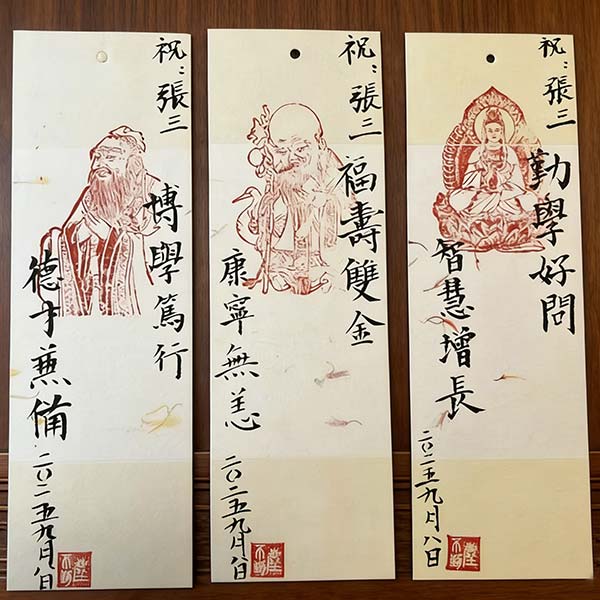 祝：張三
博學篤行
德才兼備
二〇二五九月八日
祝：張三
福壽雙金
康寧無恙
二〇二五九月八日
祝：張三
勤學好問
智慧增長
二〇二五九月八日